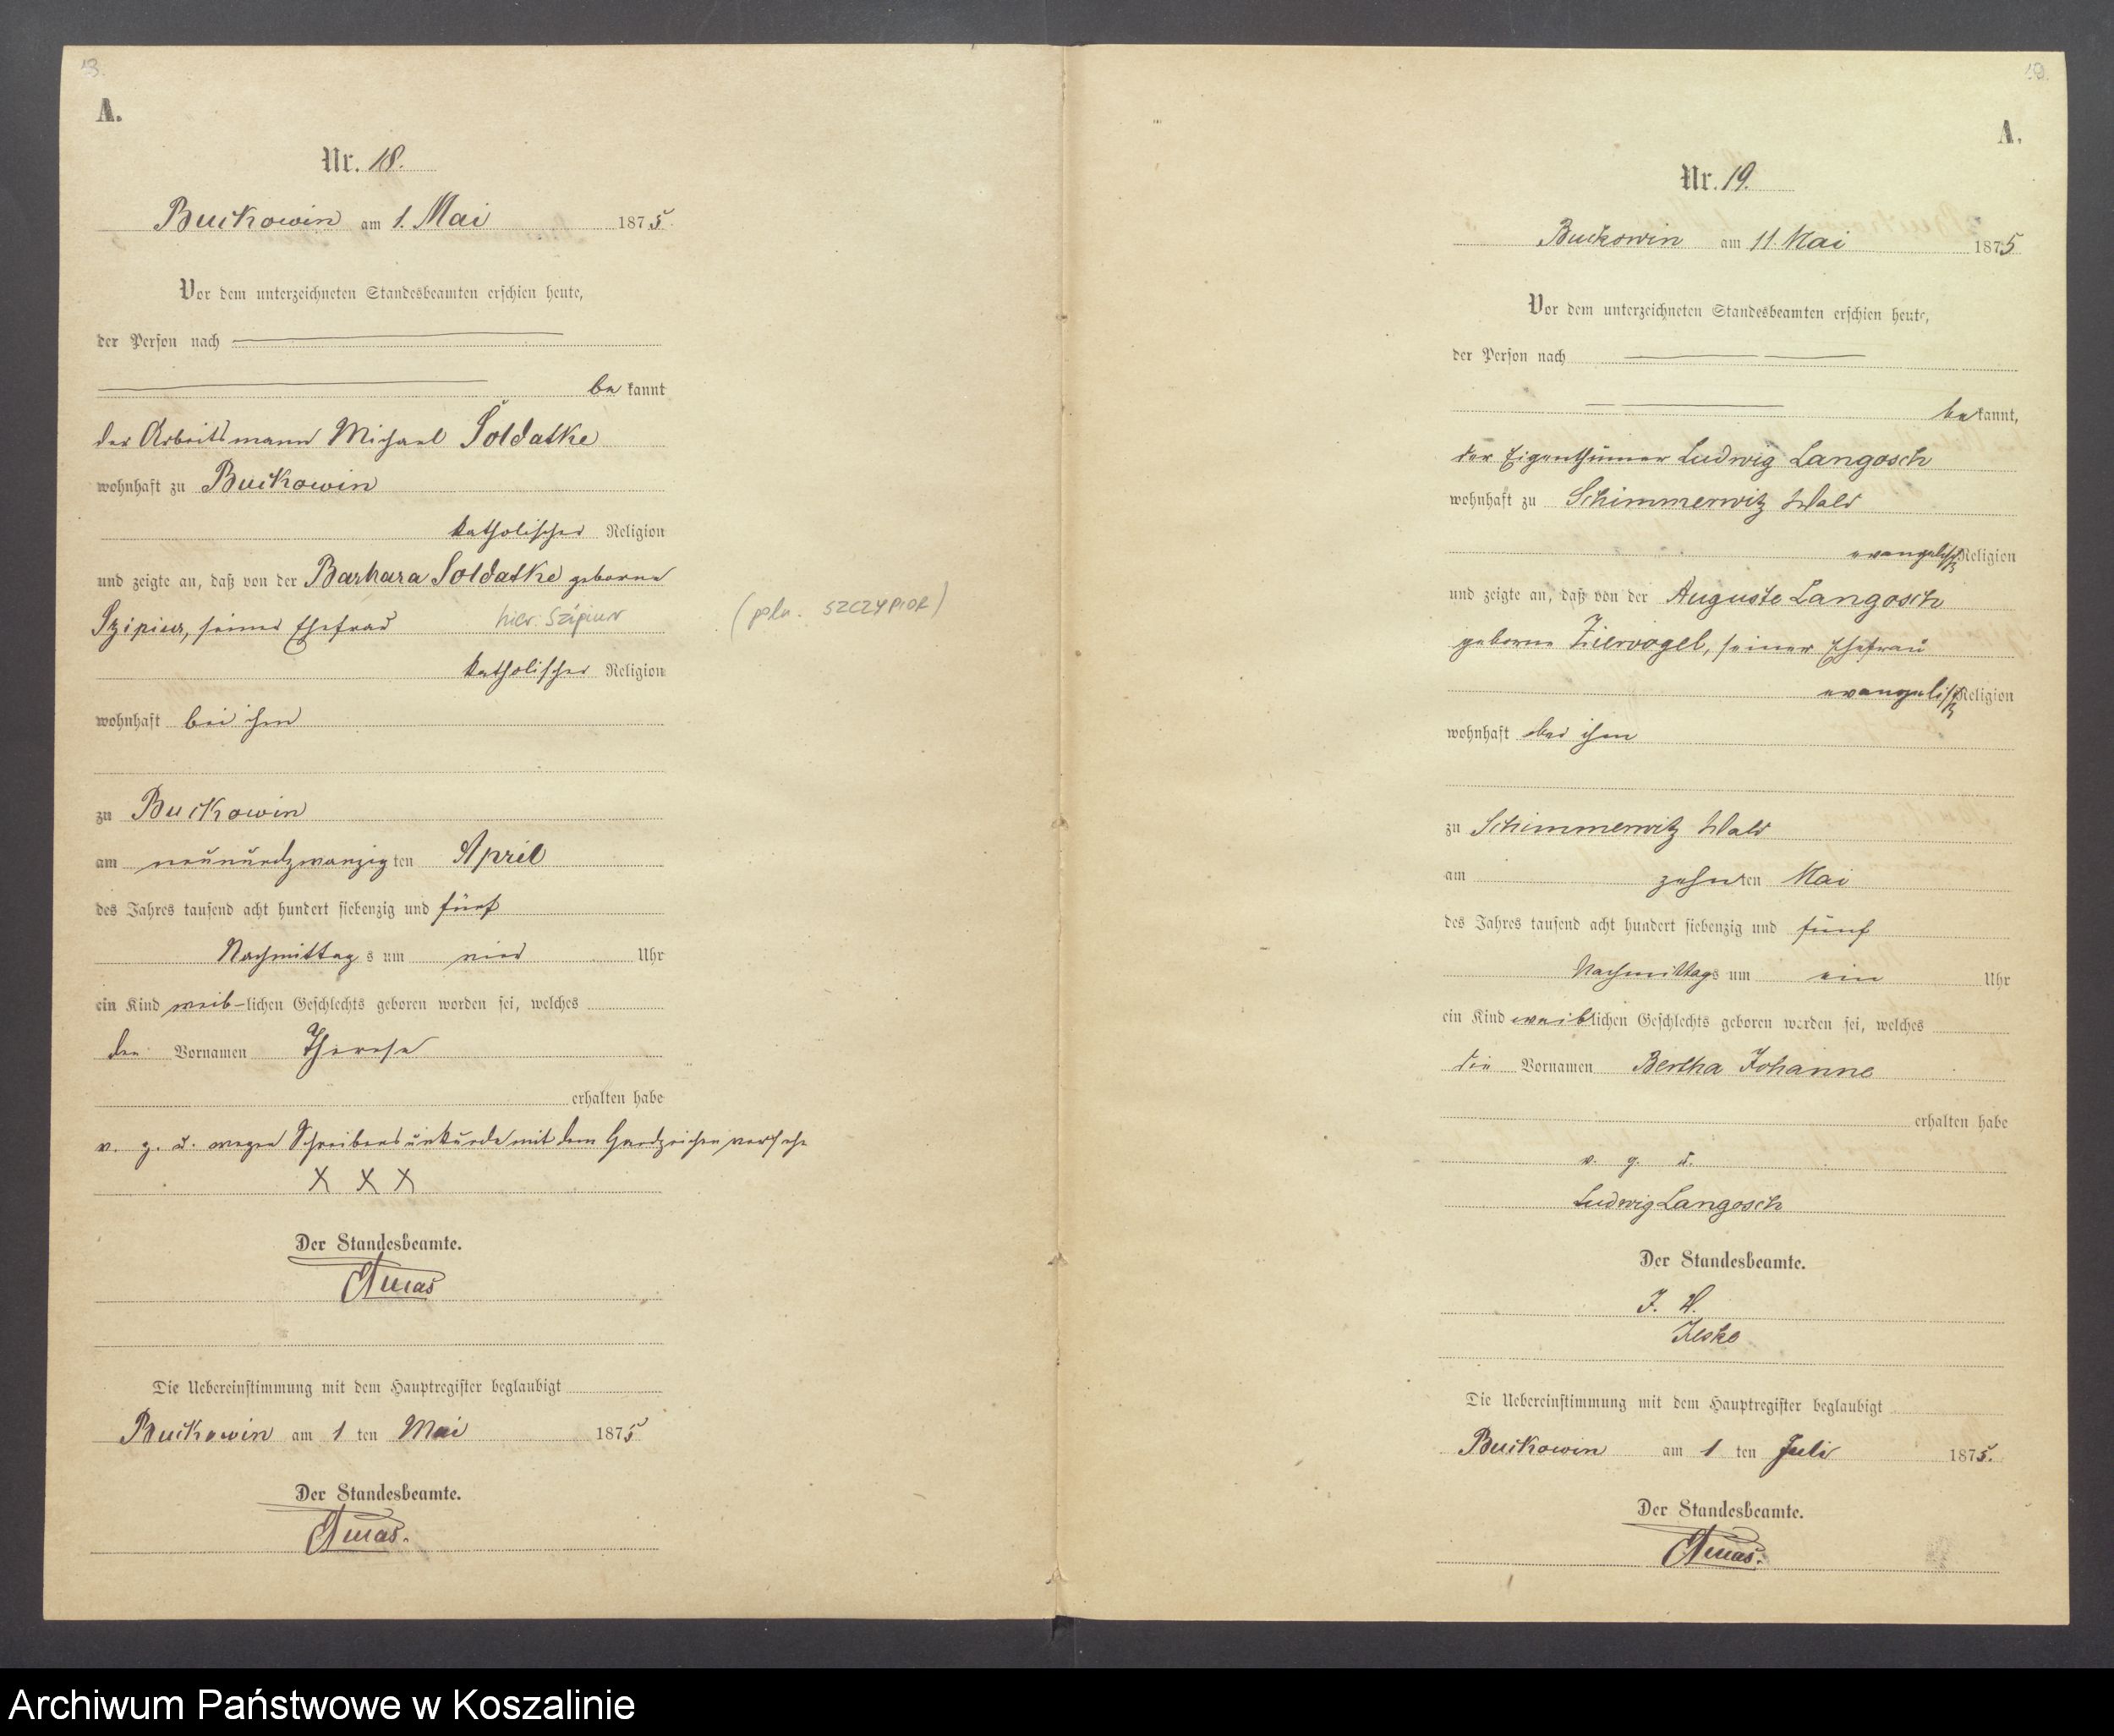 18.
A.
Nr. 18.
Buckowin am 1. Mai 1875.
Vor dem unterzeichneten Standesbeamten erschien heute,
der Person nach
be kannt
der Arbeitsmann Michael Soldatke
wohnhaft zu Buckowin
katholischer Religion
und zeigte an, daß von der Barbara Soldatke geborne
Szipior, seiner Ehefrau hier: Szipiur (poln. SZCZYPIOR)
katholischer Religion
wohnhaft bei ihm
zu Buckowin
am neunundzwanzig ten April
des Jahres tausend acht hundert siebenzig und fünf
Nachmittag s um vier Uhr
ein Kind weib-lichen Geschlechts geboren worden sei, welches
den Vornamen Therese
erhalten habe
v. g. u. wegen Schreibensunkunde mit dem Handzeichen versehen
X X X
Der Standesbeamte.
Die Uebereinstimmung mit dem Hauptregister beglaubigt
Buckowin am 1 ten Mai 1875
Der Standesbeamte.
19.
A.
Nr. 19.
Buckowin am 11. Mai 1875
Vor dem unterzeichneten Standesbeamten erschien heute,
der Person nach
bekannt,
der Eigenthümer Ludwig Langosch
wohnhaft zu Schimmerwitz Wald
evangelisch Religion
und zeigte an, daß von der Auguste Langosch
geborne Ziervogel, seiner Ehefrau
evangelisch Religion
wohnhaft bei ihm
zu Schimmerwitz Wald
am zehnten Mai
des Jahres tausend acht hundert siebenzig und fünf
Nachmittags um ein Uhr
ein Kind weiblichen Geschlechts geboren worden sei, welches
die Vornamen Bertha Johanne
erhalten habe
v. g. u.
Ludwig Langosch
Der Standesbeamte.
J. V.
Jeske
Die Uebereinstimmung mit dem Hauptregister beglaubigt
Buckowin am 1 ten Juli 1875.
Der Standesbeamte.
Archiwum Państwowe w Koszalinie